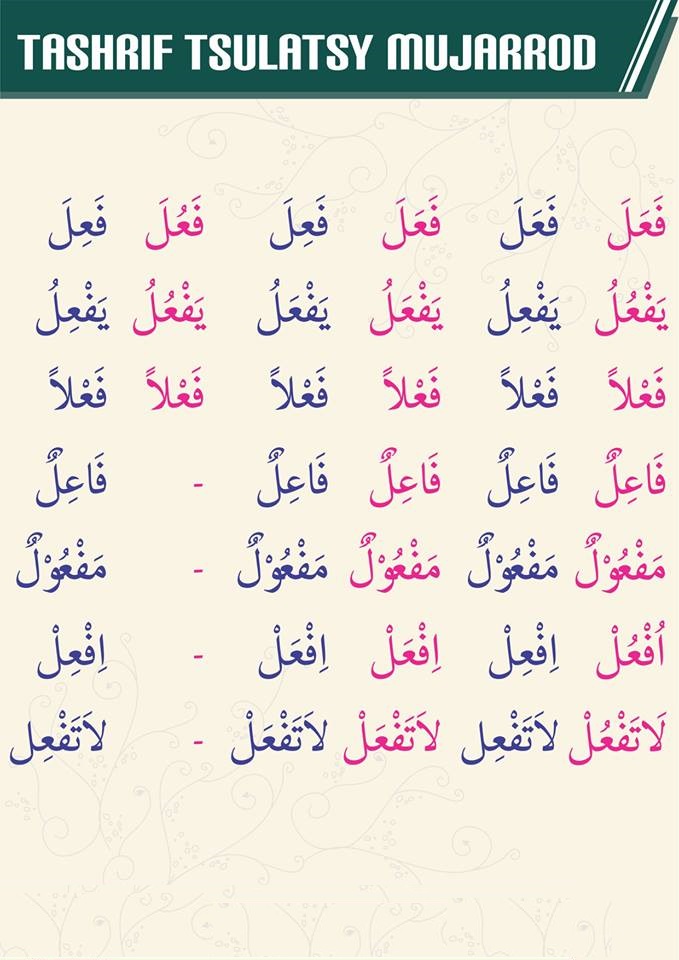 TASHRIF TSULATSY MUJARROD
فَعَلَ فَعَلَ فَعَلَ فَعِلَ فَعُلَ فَعِلَ
يَفْعُلُ يَفْعِلُ يَفْعَلُ يَفْعَلُ يَفْعُلُ يَفْعِلُ
فَعْلاً فَعْلاً فَعْلاً فَعْلاً فَعْلاً فَعْلاً
فَاعِلٌ فَاعِلٌ فَاعِلٌ فَاعِلٌ - فَاعِلٌ
مَفْعُوْلٌ مَفْعُوْلٌ مَفْعُوْلٌ مَفْعُوْلٌ - مَفْعُوْلٌ
اُفْعُلْ اِفْعِلْ اِفْعَلْ اِفْعَلْ - اِفْعِلْ
لَاتَفْعُلْ لاَتَفْعِل لاَتَفْعَلْ لاَتَفْعَلْ - لاَتَفْعِل